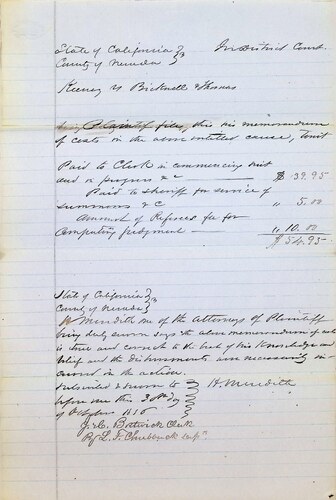 State of California } In District Court
County of Nevada }
Keeney vs Bicknell & Thomas
Plaintiff files this his memorandum
of costs in the above entitled cause, to wit
Paid to Clerk in commencing suit
and on progress &c — $39.95
Paid to Sheriff for service of
summons &c " 5.00
Amount of Referees fee for
computing judgment — " 10.00
$54.95
State of California }
County of Nevada }
H Meredith one of the attorneys of Plaintiff
being duly sworn says the above memorandum of costs
is true and correct to the best of his Knowledge and
belief and the disbursements are necessarily in-
curred in the action.
Subscribed & sworn to } H Meredith
before me this 30th day }
of October 1856
J. H. Bostwick Clerk
By L. F. Chubbuck Depy